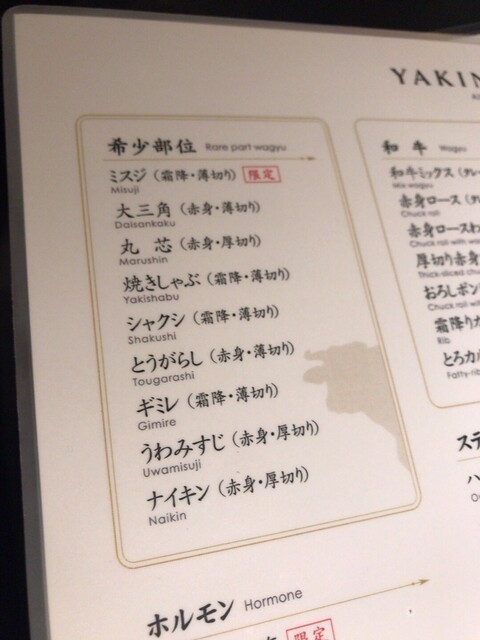 YAKIN
希少部位 Rare part wagyu
ミスジ（霜降・薄切り）限定
Misuji
大三角（赤身・薄切り）
Daisankaku
丸 芯（赤身・厚切り）
Marushin
焼きしゃぶ（霜降・薄切り）
Yakishabu
シャクシ（霜降・薄切り）
Shakushi
とうがらし（赤身・薄切り）
Tougarashi
ギミレ（霜降・薄切り）
Gimire
うわみすじ（赤身・厚切り）
Uwamisuji
ナイキン（赤身・厚切り）
Naikin
ホルモン Hormone
限定
和牛 Wagyu
和牛ミックス（タレ
Mix wagyu
赤身ロース（タ
Chuck roll
赤身ロースわ
Chuck roll with wa
厚切り赤身
Thick-sliced chu
おろしポン
Chuck roll with
霜降り
Rib
とろカル
Fatty-rib
ステ
ハ